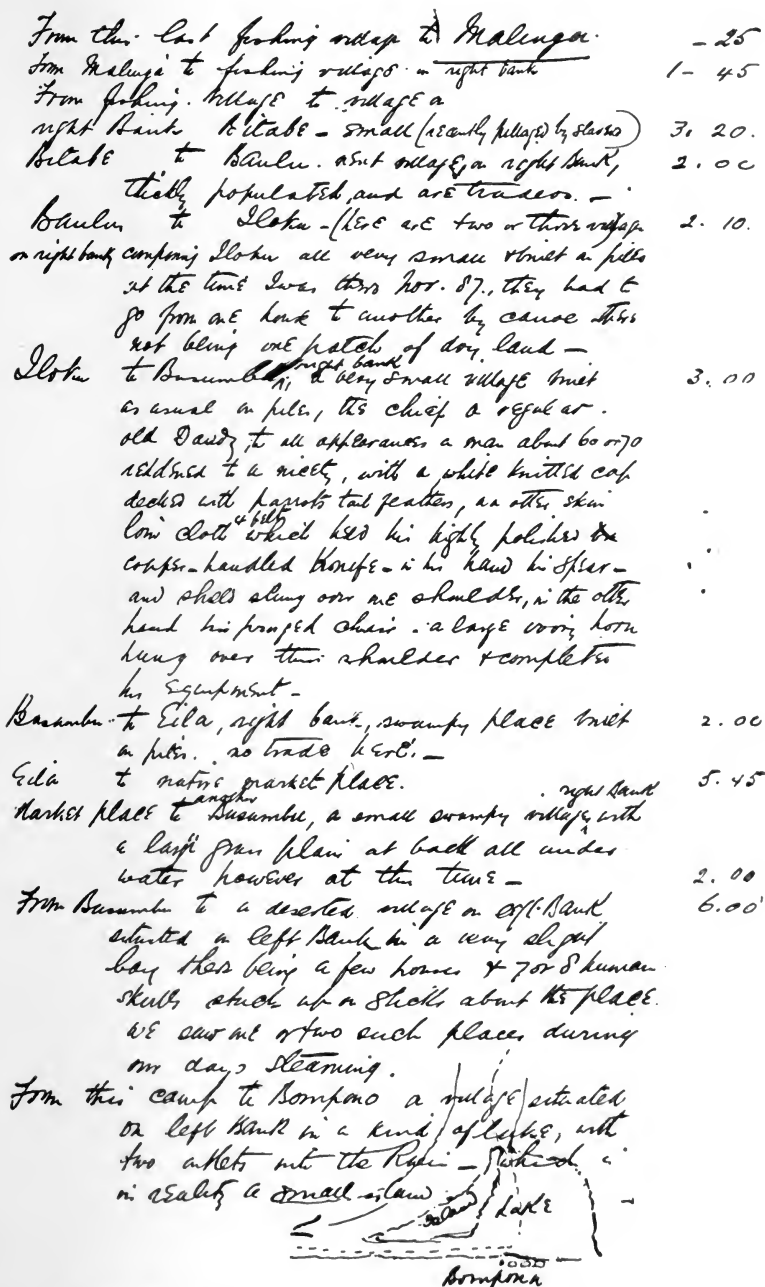 From this last fishing village to Malinga. - 25
From Malinga to fishing village on right bank 1 - 45
From fishing village to village on
right Bank Bitabe - small (recently pillaged by slavers) 3. 20.
Bitabe to Baulu. next village, on right Bank, 2. 00
thickly populated, and are traders. -
Baulu to Iloku - (here are two or three villages 2. 10.
on right bank comprising Iloku all very small & built on piles
at the time I was there Nov. 87., they had to
go from one house to another by canoe there
not being one patch of dry land -
Iloku to Busumbu right bank, a very small village built 3. 00
as usual on piles, the chief a regular
old Dandy, to all appearances a man about 60 or 70
reddened to a nicety, with a white knitted cap
decked with parrots tail feathers, an otter skin
loin cloth & belt which held his highly polished
copper-handled Knife - in his hand his spear -
and shield slung over one shoulder, in the other
hand his pronged chair. a large ivory horn
hung over this shoulder & completed
his Equipment -
Busumbu to Eila, right bank, swampy place built 2. 00
on piles. no trade here. -
Eila to native market place. 5. 45
Market place to another Busumbu, a small swampy village, right Bank with
a large grass plain at back all under
water however at this time - 2. 00
From Busumbu to a deserted village on left Bank 6.00
situated on left Bank in a very slight
bay there being a few houses & 7 or 8 human
skulls stuck up on sticks about the place.
We saw one or two such places during
our days steaming.
From this camp to Bompono a village situated
on left Bank in a kind of lake, with
two outlets into the River - which is
in reality a small island -
Island Lake
Bompona